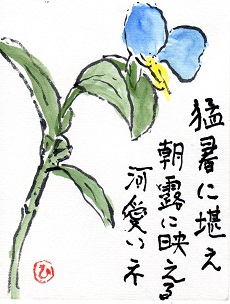 猛暑に堪え
朝露に映える
河愛いネ
ひ